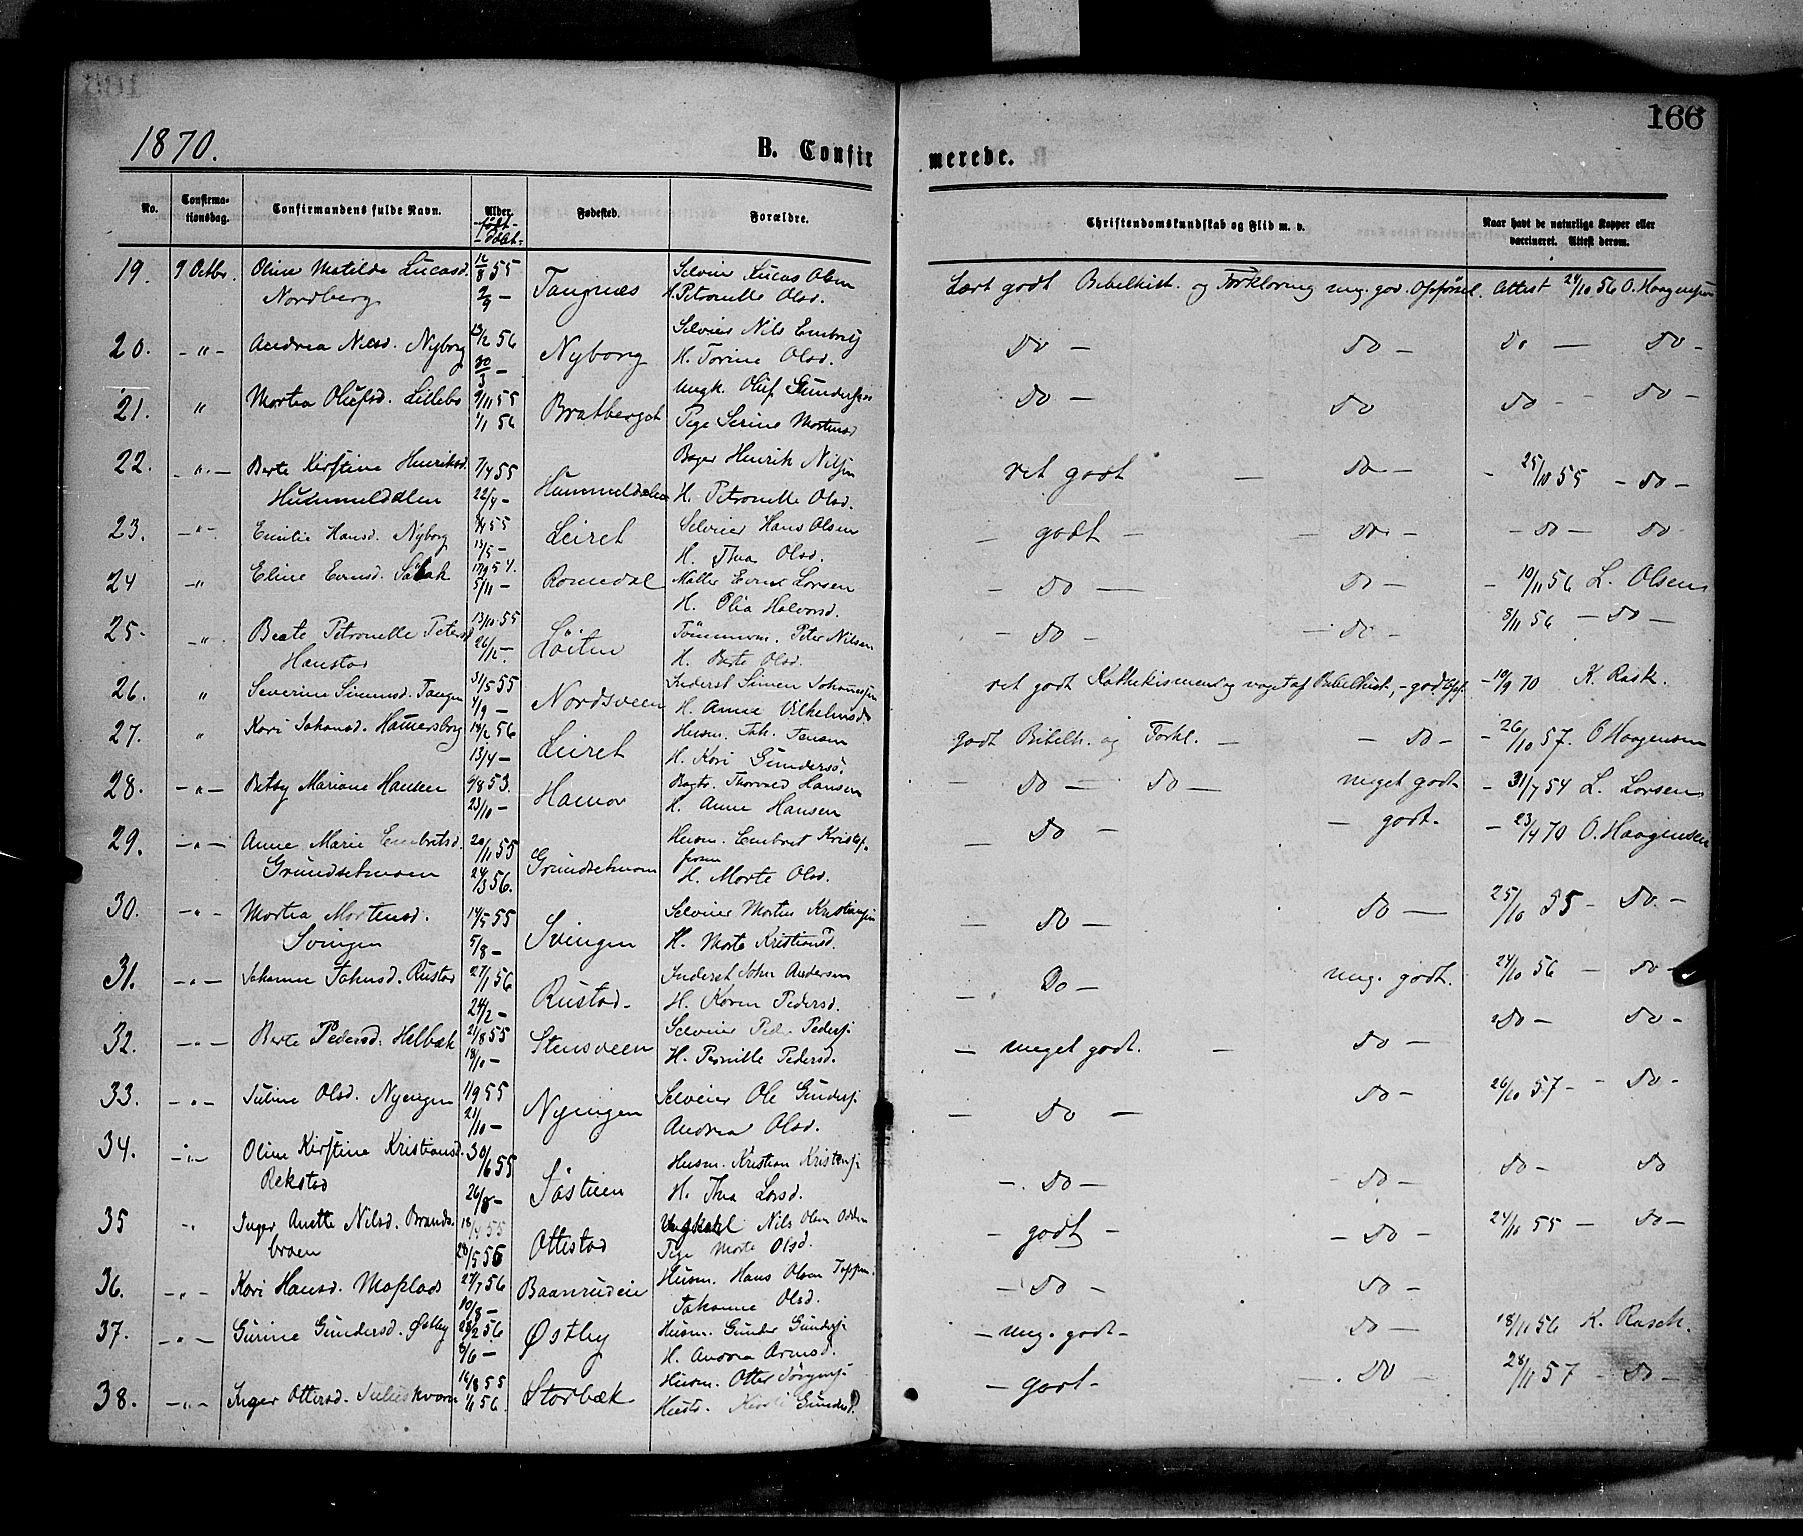 166
1870.
B. Confirmerede.
No. Confirmationsdag. Confirmandens fulde Navn. Alder. født døbt Fødested. Forældre. Christendomskundskab og Flid m. v. Naar havt de naturlige Kopper eller vaccineret. Attest derom.
19. 9 Octbr. Oline Matilde Lucasd. 12/8 55 Tangnæs Selveier Lucas Olsen Læst godt Bibelhist. og Forklaring meg. god. Opførsel. Attest 24/10 56 O. Haagensen
Nordberg 2/9 – H. Petronelle Olsd.
20. –"– Andrea Nilsd. Nyborg 13/2 56 Nyborg Selveier Nils Embretsj Do – Do – Do – Do –
30/3 – H. Torine Olsd.
21. " Martea Olufsd. Lillebo 9/11 55 Bratberget Ungk. Oluf Gundersen Do – Do Do – – Do –
1/1 56 Pige Serine Mortensd
22. –"– Berte Kirstine Henriksd. 7/4 55 Hummeldalen Bager Henrik Nilsen ret godt – Do – – 25/10 55 – Do –
Hummeldalen 22/4 – H. Petronelle Olsd.
23. –"– Emilie Hansd. Nyborg 8/4 55 Leiret Selveier Hans Olsen – godt – – Do – – Do – Do –
13/5 – H. Thea Olsd.
24 –" Eline Evensd. Sabak 17/9 54. Romedal Møller Even Larsen – Do – – Do – – 10/11 56 L. Olsen
5/11 – H. Olia Halvorsd.
25. –" Beate Petronelle Petersd 13/10 55 Løiten Tømmerm. Peter Nilsen – Do – – Do – 8/11 56 – Do –
Hanstad 26/12 – H. Berte Olsd.
26. " Severine Simensd. Tangen 31/5 55 Nordsveen Inderst Simen Johannesen ret godt Kathekismen og noget af Bibelhist, – god Opf. – 10/9 70 K. Rask.
4/9 – H. Anne Vilhelmsd
27. " Kari Johansd. Hamersborg 14/2 56 Leiret Husm. Joh. Jensen godt Bibelh. og Forkl. – – Do – – 26/10 57. O Haagensen
13/4 – H. Kari Gundersd.
28. –"– Betsy Mariane Hansen 4/8 53. Hamar Bagtr. Thorvald Hansen – Do – Do – meget godt – 31/7 54 L. Larsen
23/10 – H. Anne Hansen
29. –"– Anne Marie Embretsd. 20/11 55 Grundsetmoen Husm. Embret Kristof- – Do – – godt. – 23/4 70 O. Haagensen
Grundsetmoen 24/3 56. fersen
H. Marte Olsd.
30. –"– Martea Mortensd. 14/5 55 Svingen Selveier Morten Kristiansen – Do – Do – 25/10 55 – Do. –
Svingen 5/8 – H. Marte Kristiansd.
31. –"– Johanne Johnsd. Rustad 27/1 56 Rustad. Inderst John Andersen – Do – meg. godt. 24/10 56 – Do –
24/2 – H. Karen Pedersd.
32. –"– Berte Pedersd. Helbæk 21/8 55 Stensveen Selveier Ped. Pedersj – meget godt. – Do – Do – Do –
18/10 – H. Pernille Pedersd.
33. –"– Juline Olsd. Nyengen 1/9 55 Nyengen Selveier Ole Gundersj. – Do – Do – 26/10 57 – – Do –
21/10 – Andrea Olsd.
34. –"– Oline Kirstine Kristiansd. 30/6 55 Søstuen Husm. Kristian Kristensj. – Do – – Do – Do – Do
Rekstad 26/8 – H. Thea Larsd.
35 –" Inger Anette Nilsd. Brands- 18/4 55 Ottestad Ungkarl Nils Olsen – godt – – Do – 24/10 55 – Do –
broen 28/5 55 Pige Marte Olsd.
36. –"– Kari Hansd. Moplads 27/7 56 Baanrudeie Husm. Hans Olsen – Do – Do –
10/8 – Johanne Olsd.
37. –"– Gurine Gundersd. Østby 28/2 56 Østby Husm. Gunder Gundersj – meg. godt – Do – 18/11 56 K. Rasch.
8/6 – H. Andrea Arnesd.
38. –"– Inger Ottersd. Juliuskvarn 16/8 55 Storbæk Husm. Otter Jørgensj – godt – – Do – 28/11 57 – Do –
1/1 56. Gundersd.